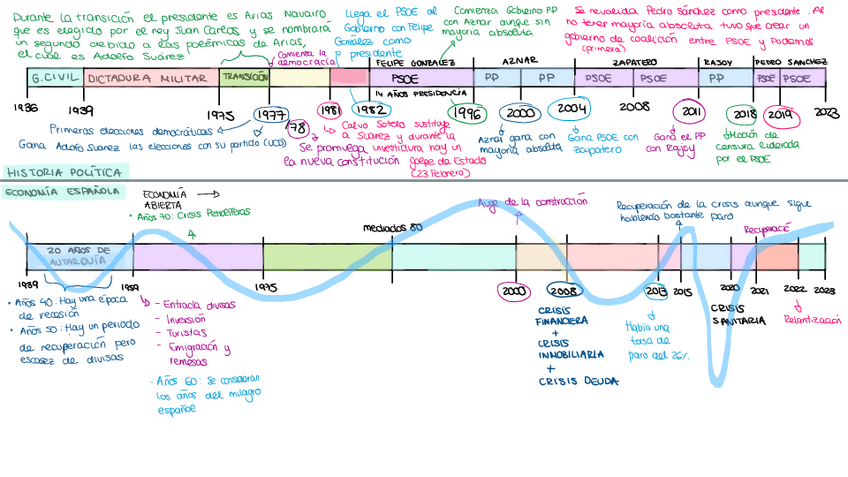 Durante la transición el presidente es Arias Navarro
que es elegido por el rey Juan Carlos y se nombrará
un segundo debido a las polémicas de Arias,
el cual es Adolfo Suárez
Comienza la
democracia
Llega el PSOE al
Gobierno con Felipe
González como
presidente
Comienza Gobierno PP
con Aznar aunque sin
mayoría absoluta
Se revalida Pedro Sánchez como presidente. Al
no tener mayoría absoluta tuvo que crear un
gobierno de coalición entre PSOE y Podemos
(primera)
FELIPE GONZALEZ
AZNAR
ZAPATERO
RAJOY
PEDRO SANCHEZ
G.CIVIL
DICTADURA MILITAR
TRANSICIÓN
PSOE
PP
PP
PSOE
PSOE
PP
PSOE
PSOE
14 AÑOS PRESIDENCIA
1936
1939
1975
1977
1981
1982
1996
2000
2004
2008
2011
2018
2019
2023
Primeras elecciones democráticas
Gana Adolfo Suarez las elecciones con su partido (UCD)
78
Se promulga
la nueva constitución
Calvo Sotelo sustituye
a Suárez y durante la
investidura hay un
golpe de Estado
(23 Febrero)
Aznar gana con
mayoría absoluta
Gana PSOE con
Zapatero
Gana el PP
con Rajoy
Moción de
censura liderada
por el PSOE
HISTORIA POLÍTICA
ECONOMÍA ESPAÑOLA
ECONOMÍA
ABIERTA
• Años 70: Crisis Petrolíferas
mediados 80
Auge de la construcción
Recuperación de la crisis aunque sigue
habiendo bastante paro
20 AÑOS DE
AUTARQUÍA
1939
1959
1975
2000
2008
2013
2015
2020
2021
2022
2023
• Años 40: Hay una época
de recesión
• Años 50: Hay un periodo
de recuperación pero
escasez de divisas
- Entrada divisas
- Inversión
- Turistas
- Emigración y
remesas
• Años 60: Se consideran
los años del milagro
español
CRISIS
FINANCIERA
+
CRISIS
INMOBILIARIA
+
CRISIS DEUDA
Había una
tasa de
paro del 26%
CRISIS
SANITARIA